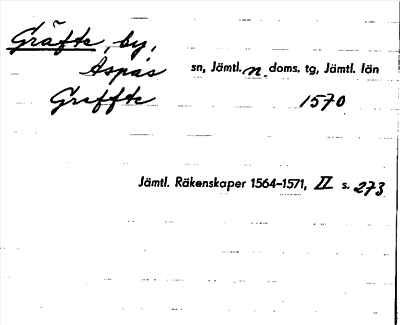 Gräfte, by,
Aspås sn, Jämtl. n. doms. tg, Jämtl. län
Greffte 1570
Jämtl. Räkenskaper 1564-1571, II s. 273